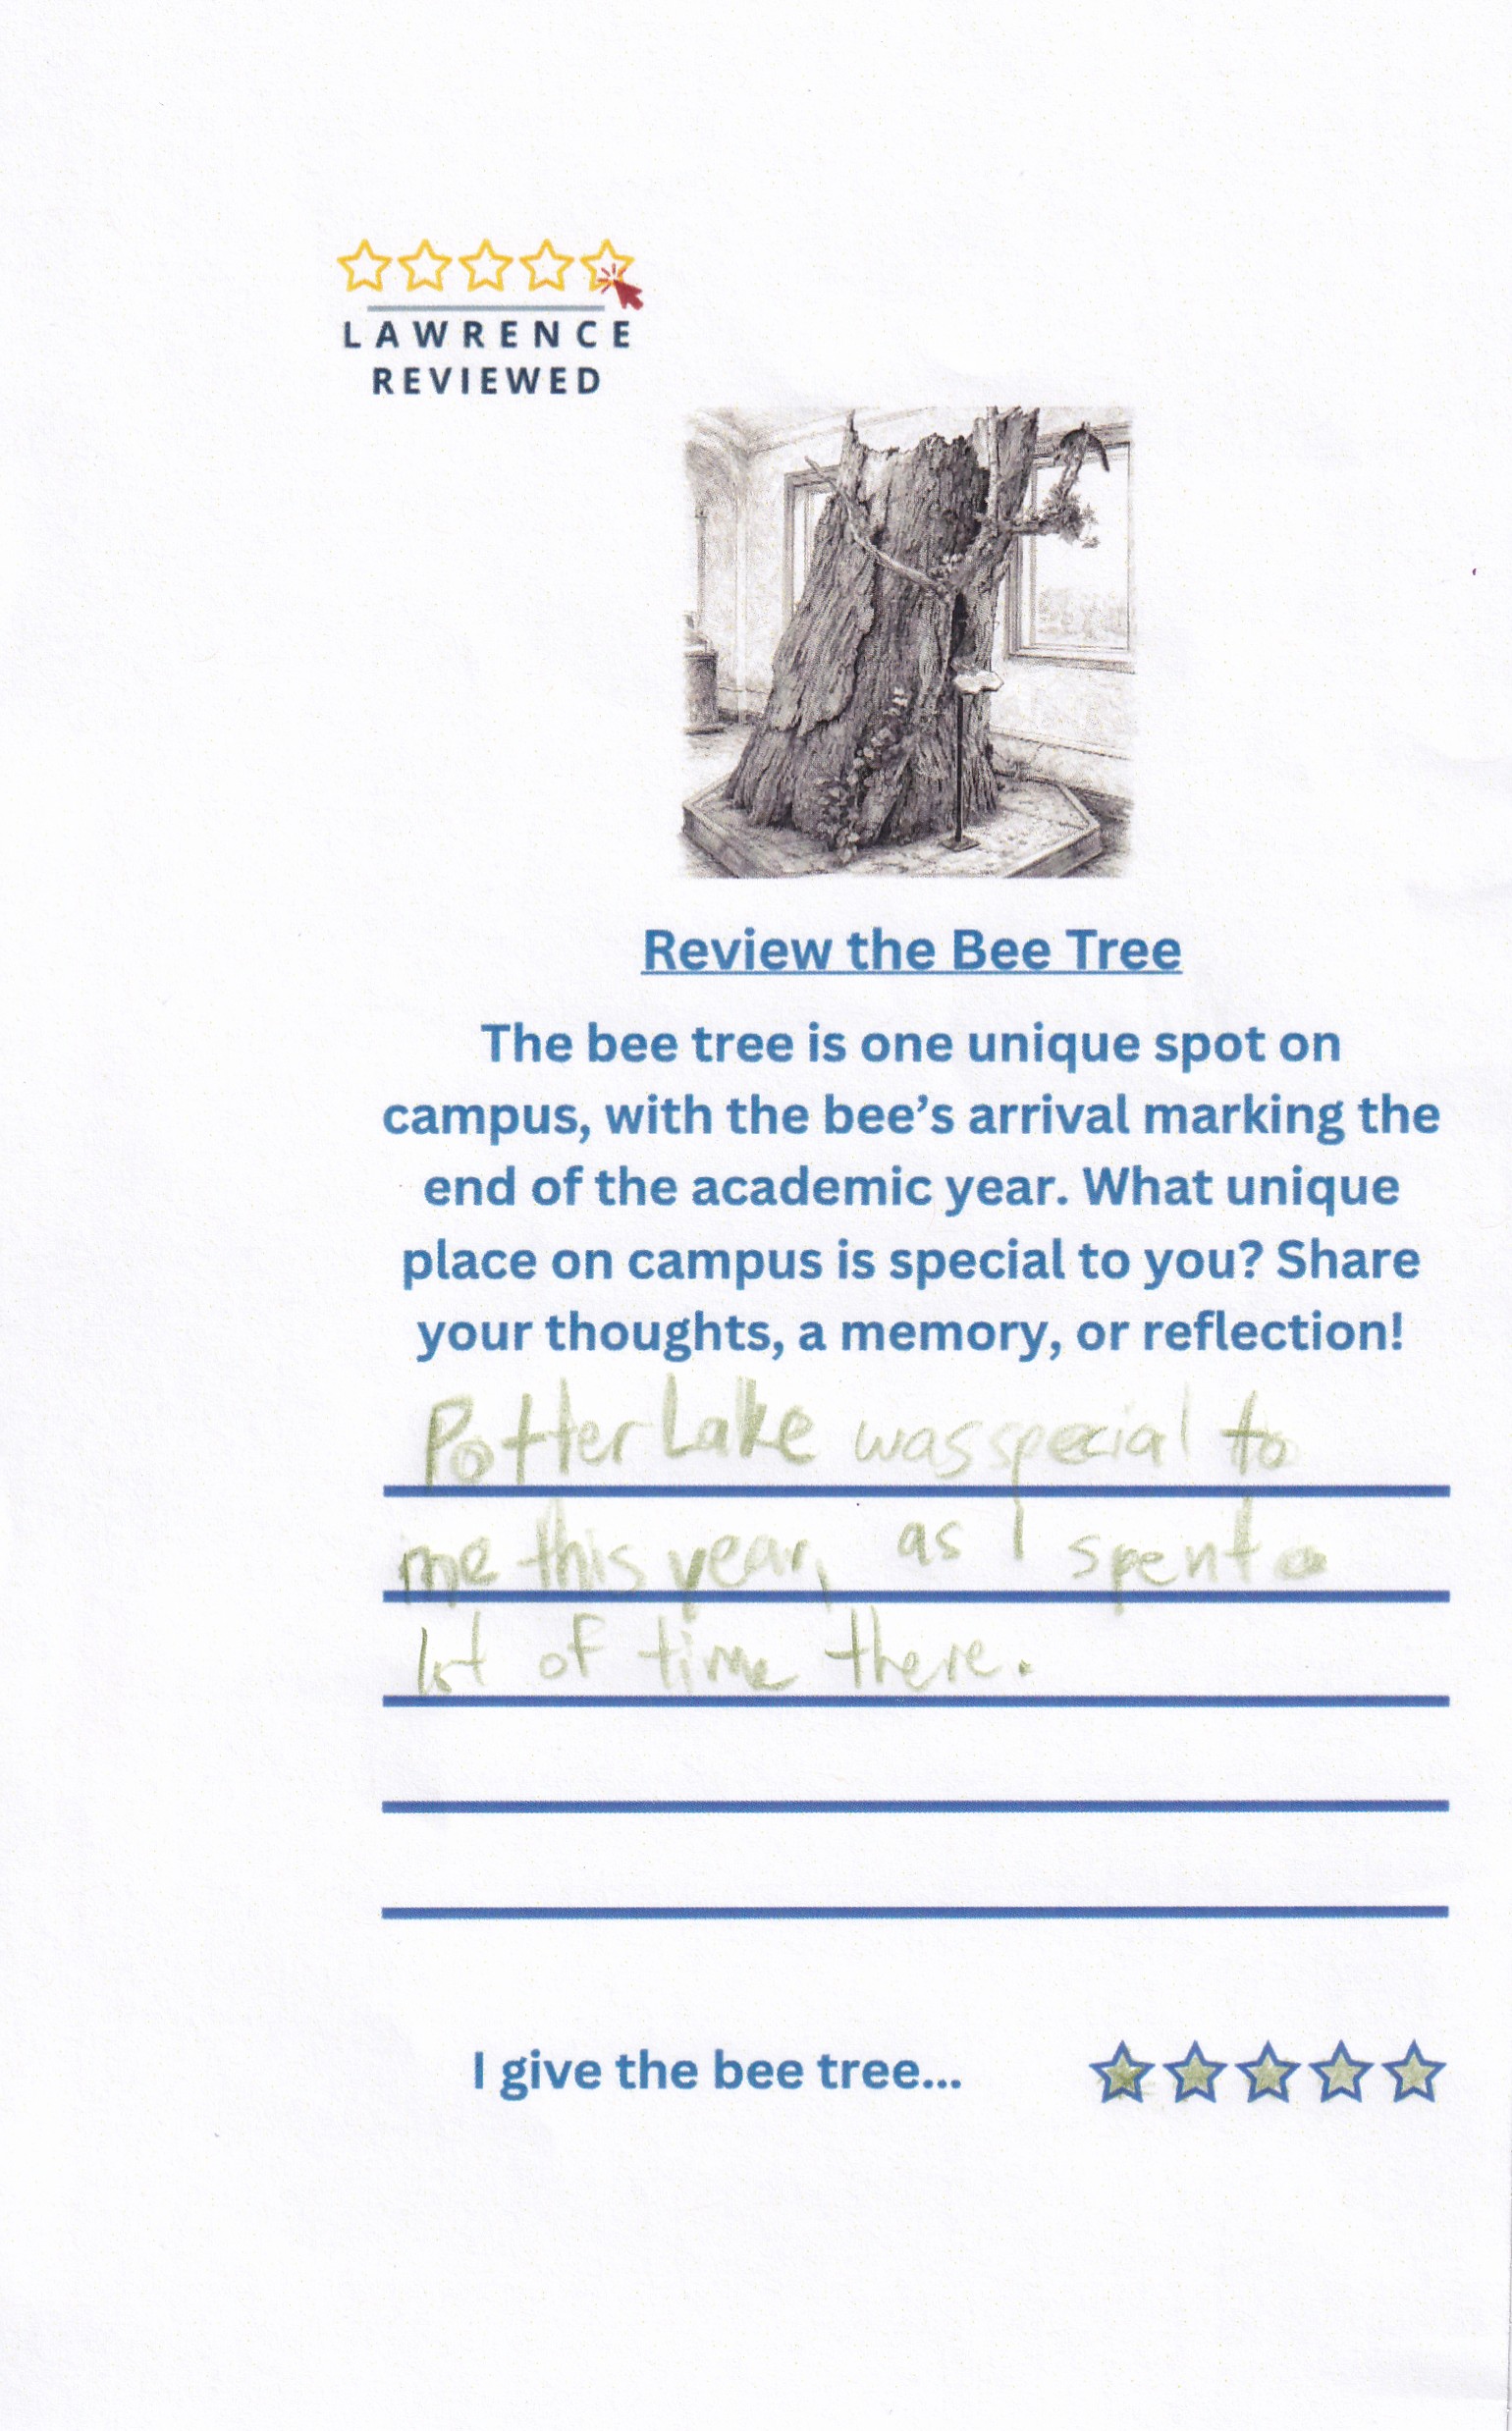 LAWRENCE
REVIEWED
Review the Bee Tree
The bee tree is one unique spot on
campus, with the bee's arrival marking the
end of the academic year. What unique
place on campus is special to you? Share
your thoughts, a memory, or reflection!
Potter Lake was special to
me this year, as I spent a
lot of time there.
I give the bee tree...